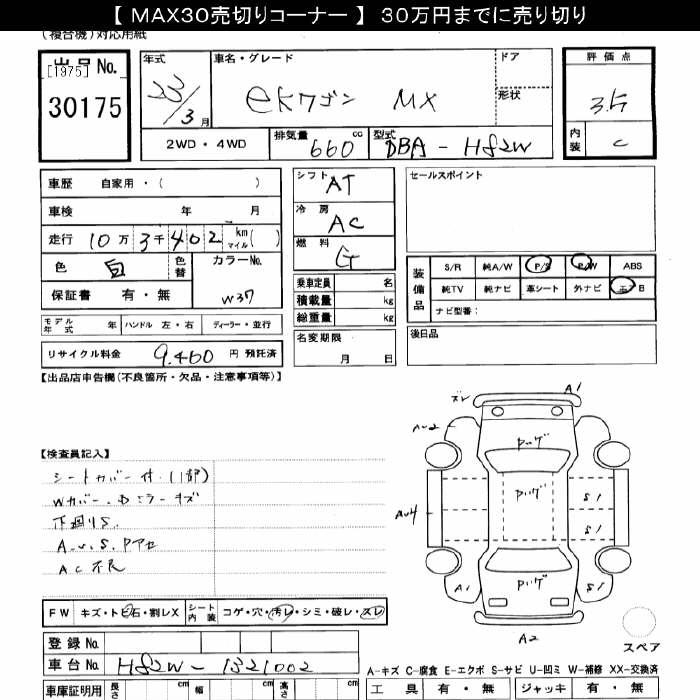 【 MAX30売切りコーナー 】 30万円までに売り切り
(複合機) 対応用紙
出品 No.
[1975]
30175
年式
23/3月
車名・グレード
ekワゴン MX
ドア
形状
評価点
3.5
内装 C
2WD・4WD
排気量 660 cc
型式 DBA-H82W
車歴 自家用・( )
車検 年 月
走行 10万3千402 km マイル ( )
色 白 色替
カラーNo. W37
保証書 有・無
モデル年式 年 ハンドル 左・右 ディーラー・並行
リサイクル料金 9,460 円 預託済
シフト AT
冷房 AC
燃料 G
乗車定員 名
積載量 kg
総重量 kg
名変期限 月 日
セールスポイント
装備品
S/R 純A/W P/S P/W ABS
純TV 純ナビ 革シート 外ナビ エアB
ナビ型番:
後日品
【出品店申告欄(不良箇所・欠品・注意事項等)】
【検査員記入】
シートカバー付.(1部)
Wカバー.Dミラーキズ
下廻りS.
A.U.S.Pアセ
AC不良
ズレ
A1
AU2
Pハゲ
Pハゲ
S1
AU4
S1
Pハゲ
A1
S1
A2
スペア
FW キズ・トビ石・割レX シート内装 コゲ・穴・汚レ・シミ・破レ・スレ
登録 No.
車台 No. H82W-1321002
車庫証明用 長さ cm 幅 cm 高さ cm
A-キズ C-腐食 E-エクボ S-サビ U-凹ミ W-補修 XX-交換済
工具 有・無 ジャッキ 有・無